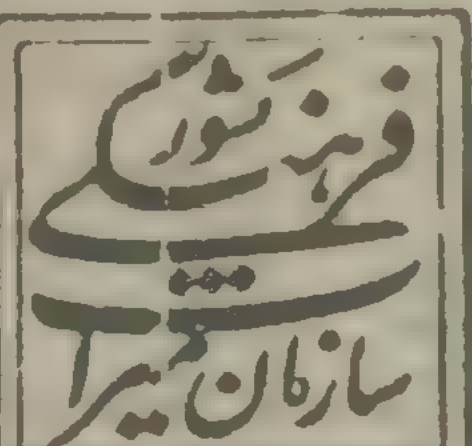 سازمان میراث
فرهنگی کشور